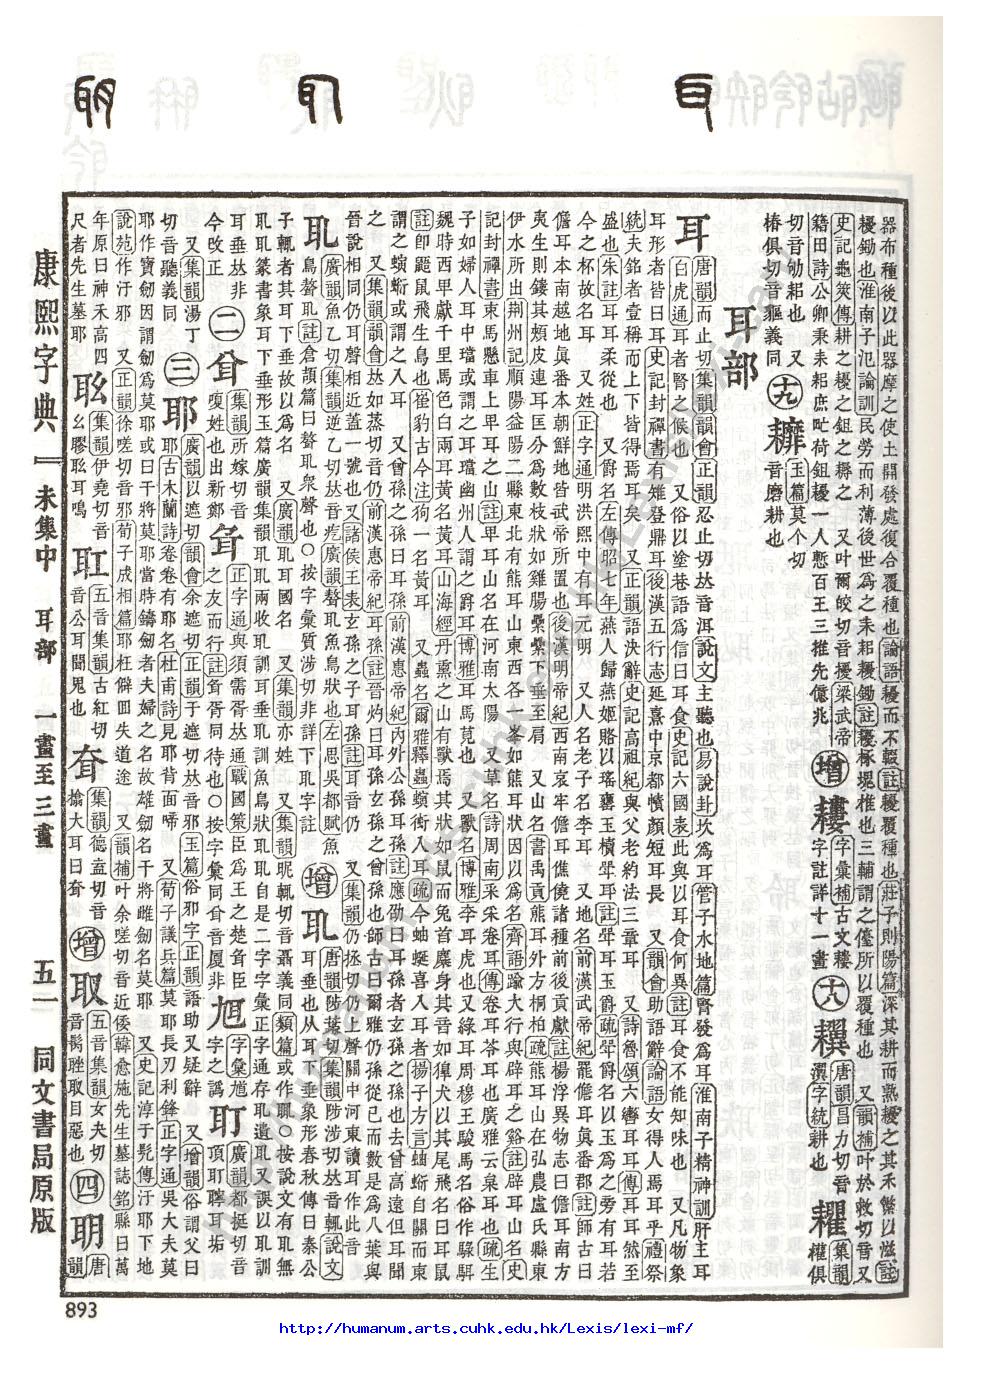 耳 耴 明
器布種後以此器摩之使土開發處復合覆種也論語耰而不輟註耰覆種也莊子則陽篇深其耕而熟耰之其禾繁以滋註
耰鋤也淮南子氾論訓民勞而利薄後世爲之耒耜耰鋤註耰椓塊椎也三輔謂之儓所以覆種也 又韻補叶於救切音又
史記龜筴傳耕之耰之鉏之耨之 又叶爾皎切音擾梁武帝
籍田詩公卿秉耒耜庶甿荷鉏耰一人慙百王三推先億兆
切音
耜也 又
椿俱切音
義同
十九 耱 玉篇莫个切音磨耕也
增 耬 字彙補古文耬字註詳十一畫
十八 唐韻昌力切音
字統耕也 耀 集韻權俱
耳部
耳 唐韻而止切集韻韻會正韻忍止切𠀤音洱說文主聽也易說卦坎爲耳管子水地篇腎發爲耳淮南子精神訓肝主耳
白虎通耳者腎之候也 又俗以塗巷語爲信曰耳食史記六國表此與以耳食何異註耳食不能知味也 又凡物象
耳形者皆曰耳史記封禪書有雉登鼎耳後漢五行志延熹中京都幘顏短耳長 又韻會助語辭論語女得人焉耳乎禮祭
統夫銘者壹稱而上下皆得焉耳矣 又正韻語決辭史記高祖紀與父老約法三章耳 又詩魯頌六轡耳耳傳耳耳然至
盛也朱註耳耳柔從也 又爵名左傳昭七年燕人歸燕姬賂以瑤罋玉櫝斝耳註斝耳玉爵疏斝爵名以玉爲之旁有耳若
今之杯故名耳 又姓正字通明洪熙中有耳元明 又人名老子名李耳 又地名前漢武帝紀罷儋耳眞番郡註師古曰
儋耳本南越地眞番本朝鮮地皆武帝所置也後漢明帝紀西南哀牢儋耳僬僥諸種前後貢獻註楊浮異物志曰儋耳南方
夷生則鏤其頰皮連耳匡分爲數枝狀如雞腸纍纍下垂至肩 又山名書禹貢熊耳外方桐柏疏熊耳山在弘農盧氏縣東
伊水所出荆州記順陽益陽二縣東北有熊耳山東西各一峯如熊耳狀因以爲名齊語踰大行與辟耳之谿註辟耳山名史
記封禪書束馬懸車上𤰞耳之山註𤰞耳山名在河南太陽 又草名詩周南采采卷耳傳卷耳苓耳也廣雅云枲耳也疏生
子如婦人耳中璫或謂之耳璫幽州人謂之爵耳博雅耳馬莧也 又獸名博雅李耳虎也又綠耳周穆王駿馬名俗作騄駬
魏時西𤰞獻千里馬色白兩耳黃名黃耳山海經丹熏之山有獸焉其狀如鼠而兔首麋身其音如獋犬以其尾飛名曰耳鼠
註卽鼯鼠飛生鳥也崔豹古今注狗一名黃耳 又蟲名爾雅釋蟲螾衝入耳疏今蚰蜒喜入耳者揚子方言蚰蜒自關而東
謂之螾蚓或謂之入耳 又曾孫之孫曰耳孫前漢惠帝紀內外公孫耳孫註應劭曰耳孫者玄孫之子也去曾高遠但耳聞
之 又集韻韻會𠀤如蒸切音仍前漢惠帝紀耳孫註晉灼曰耳孫玄孫之曾孫也師古曰爾雅仍孫從已而數是爲八葉與
晉說相同仍耳聲相近蓋一號也又諸侯王表玄孫之子耳孫註耳音仍 又集韻仍拯切仍上聲關中河東讀耳作此音
耴 廣韻魚乙切集韻逆乙切𠀤音疙廣韻聱耴魚鳥狀也左思吳都賦魚
鳥聱耴註倉頡篇曰聱耴衆聲也○按字彙質涉切非詳下耴字註
增 耴 唐韻陟葉切集韻陟涉切𠀤音輒說文
耳垂也从耳下垂象形春秋傳曰秦公
子輒者其耳下垂故以爲名 又廣韻耴耳國名 又集韻亦姓 又集韻昵輒切音聶義同類篇或作𦕈○按說文有耴無
耴耴篆書象耳下垂形玉篇廣韻集韻耴耴兩收耴訓耳垂耴訓魚鳥狀耴耴自是二字字彙正字通存耴遺耴又誤以耴訓
耳垂𠀤非
今改正
二 耷 集韻所嫁切音
𢈔姓也出新鄭 𦔻 正字通與須需胥𠀤通戰國策臣爲王之楚𦔻臣
之友而行註胥胥同待也○按字彙同𦔻廈非
字彙
字之譌 耵 廣韻都挺切音
頂耵聹耳垢
切 又集韻湯丁
切音聽義同
三 耶 廣韻以遮切韻會余遮切正韻于遮切𠀤音邪玉篇俗邪字正韻語助又疑辭 又增韻俗謂父曰
耶古木蘭詩卷卷有耶名杜甫詩見耶背面啼 又荀子議兵篇莫耶長刃利鋒正字通吳大夫莫
耶作寶劒因謂劒爲莫耶或曰干將莫耶當時鑄劒者夫婦之名故雄劒名干將雌劒名莫耶又史記淳于髡傳汙耶下地
說苑作汙邪 又正韻徐嗟切音邪荀子成相篇耶枉僻回失道途 又韻補叶余嗟切音近倭韓愈施先生墓誌銘縣曰萬
年原曰神禾高四
尺者先生墓耶
集韻伊堯切音
幺膠聈耳鳴
耾 五音集韻古紅切
音公耳聞鬼也
集韻德盍切音
㯓大耳曰耷
增 取 五音集韻女夬切
音
取目惡也
四 明 唐
韻
康熙字典 未集中 耳部 一畫至三畫 五一 同文書局原版
893
http://humanum.arts.cuhk.edu.hk/Lexis/lexi-mf/